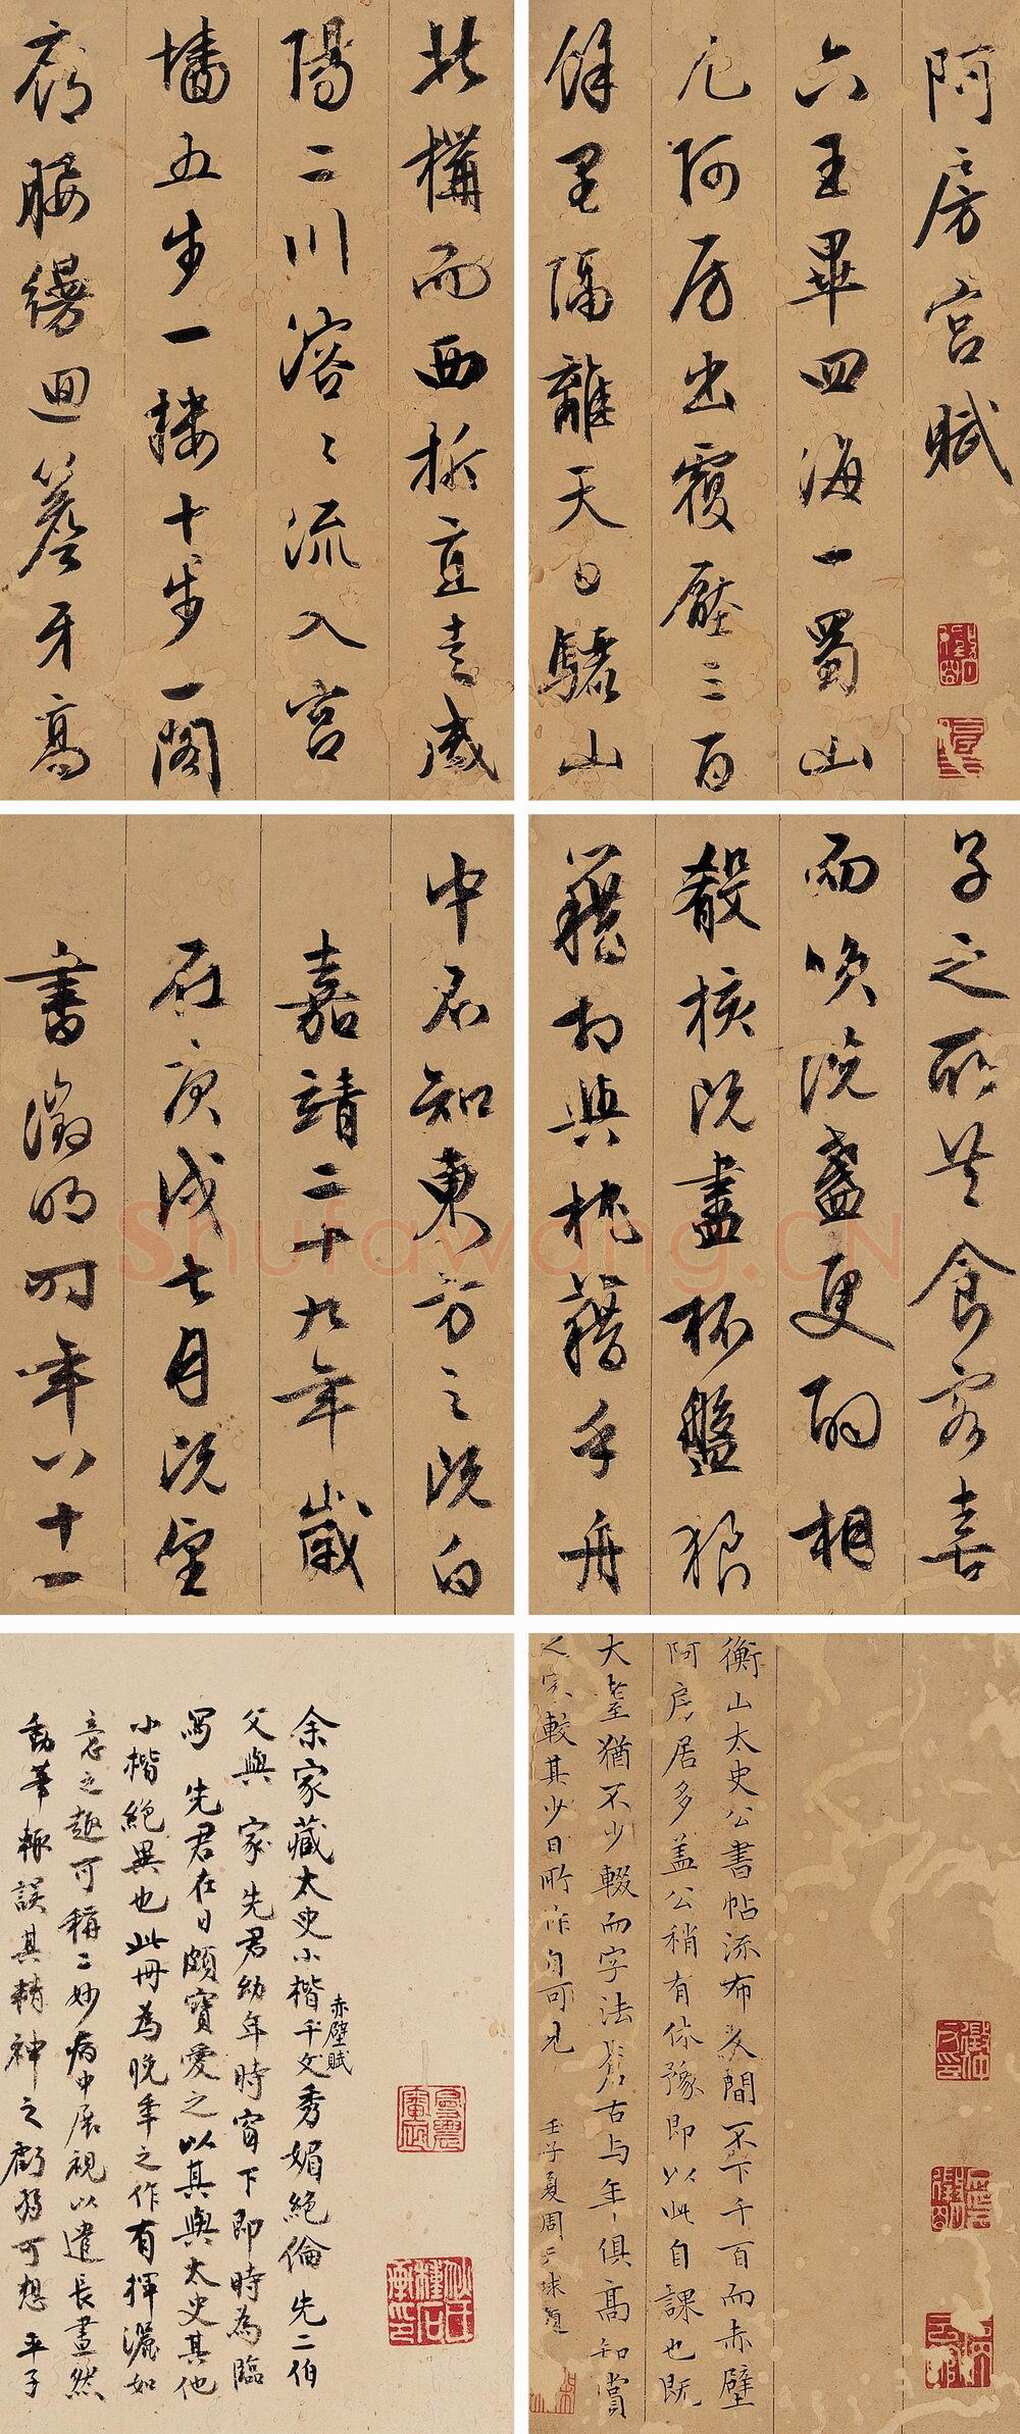 阿房宮賦
六王畢四海一蜀山
兀阿房出覆壓三百
餘里隔離天日驪山
北構而西折直走咸
陽二川溶〻流入宮
墻五步一樓十步一閣
廊腰縵迴簷牙高
子之所共食客喜
而笑洗盞更酌相
殽核既盡杯盤狼
籍相與枕藉乎舟
中不知東方之既白
嘉靖二十九年歲
在庚戌七月既望
書徵明時年八十一
衡山太史公書帖流布人間不下千百而赤壁
阿房居多蓋公稍有休豫即以此自課也既
大耋猶不少輟而字法蒼古与年俱高知賞
之家較其少日所作自可見 壬子夏周天球題
余家藏太史小楷千文秀媚絕倫先二伯
赤壁賦
父與 家先君幼年時窗下即時為臨
寫 先君在日頗寶愛之以其與太史其他
小楷絕異也此冊為晚年之作有揮灑如
意之趣可稱二妙病中展視以遣長晝然
動筆輒誤其精神之 可想 平子
Shufawang.CN